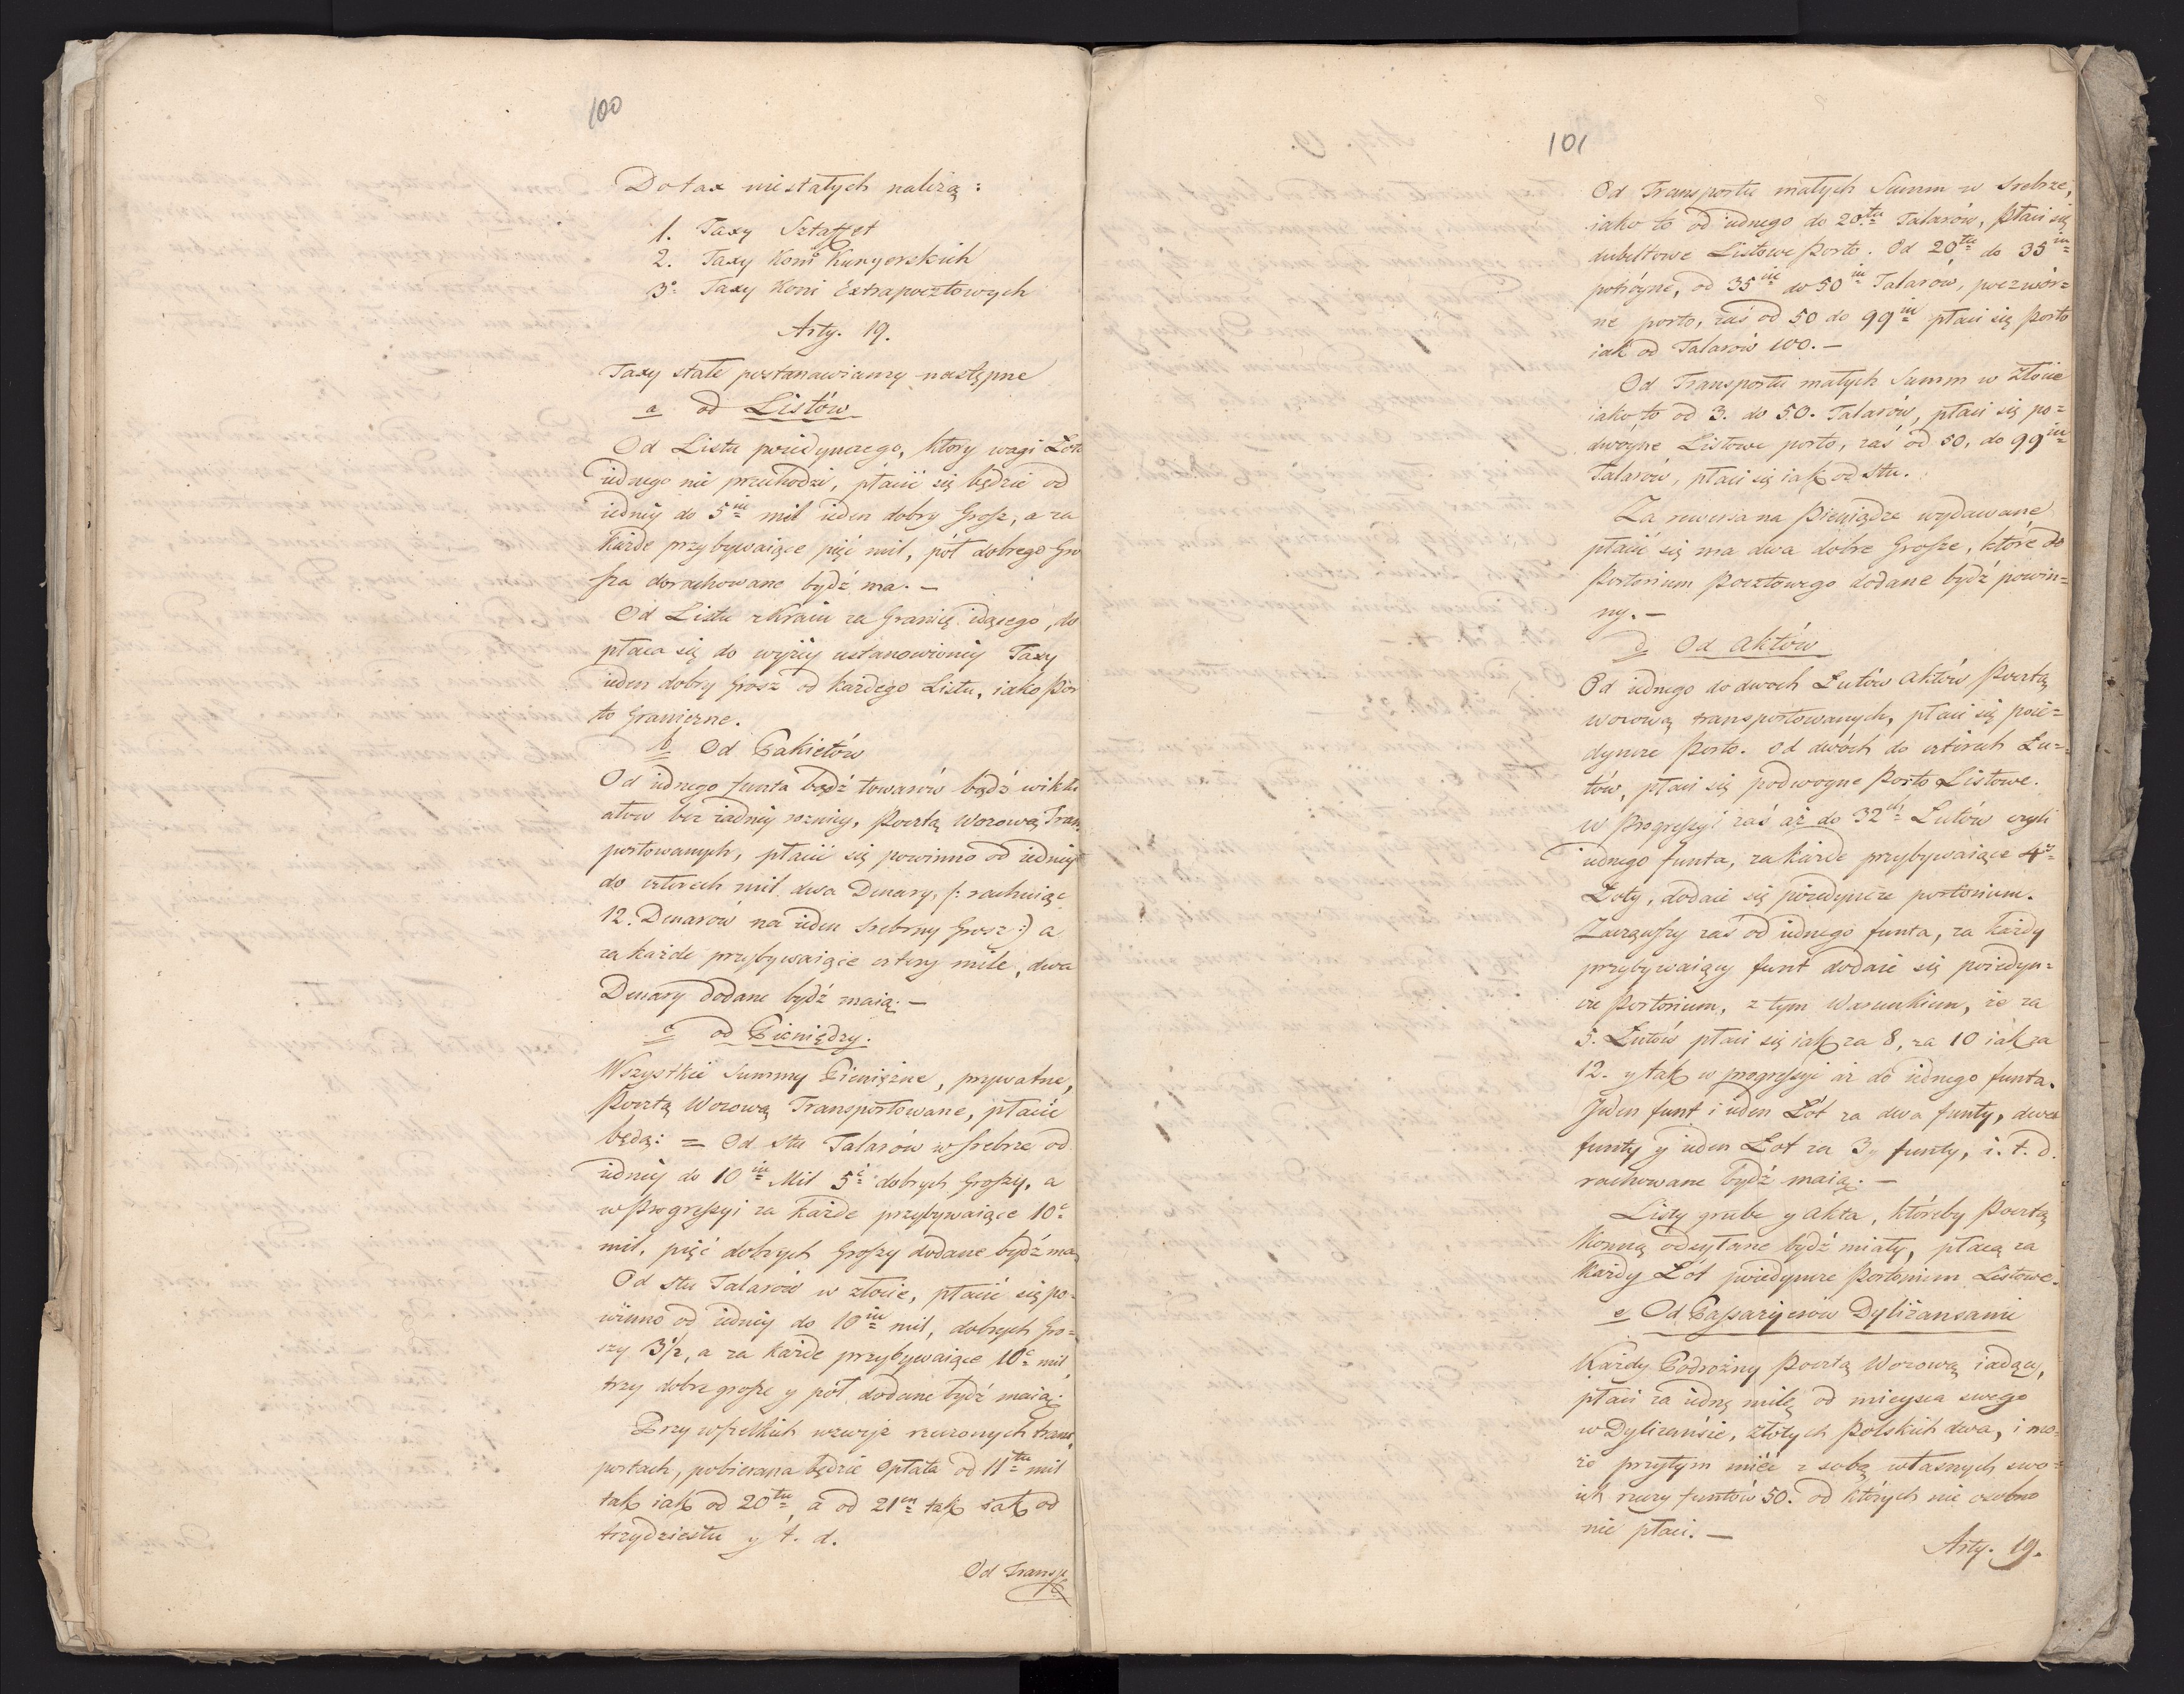 100
Do tax niestałych należą:
1. Taxy Sztaffet
2. Taxy Koni Kuryerskich
3° Taxy Koni Extrapocztowych
Arty. 19.
Taxy stałe postanawiamy następne
a od Listów
Od Listu poiedynczego, który wagi Łóta
iednego nie przechodzi, płacić się będzie od
iedney do 5iu mil ieden dobry Grosz, a za
każde przybywaiące pięć mil, pół dobrego Gro
sza dorachowane bydź ma. —
Od Listu z Kraiu za Granicę idącego, do
płaca się do wyżey ustanowioney Taxy
ieden dobry Grosz od każdego Listu, iako Por
to Graniczne.
b Od Pakietów
Od iednego funta bądź towarów bądź wiktu
ałów bez żadney roznicy, Pocztą Wozową Trans
portowanych, płacić się powinno od iedney
do czterech mil dwa Denary, /: rachuiąc
12. Denarów na ieden srebrny Grosz :) a
za każde przybywaiące cztery mile, dwa
Denary dodane bydź maią. —
c od Pieniędzy.
Wszystkie Summy Pieniężne, prywatne,
Pocztą Wozową Transportowane, płacić
będą: = Od stu Talarów w srebrze od
iedney do 10iu Mil 5ć dobrych Groszy, a
w Progressyi za każde przybywaiące 10ć
mil, pięć dobrych Groszy dodane bydź ma
Od stu Talarów w złocie, płacić się po-
winno od iedney do 10iu mil, dobrych Gro=
szy 3½, a za każde przybywaiące 10ć mil,
trzy dobre grosze y pół dodane bydź maią.
Przy wszelkich wzwyż rzeczonych trans
portach, pobierana będzie Opłata od 11tu mil
tak iak od 20tu, a od 21en tak iak od
trzydziestu y t. d.
Od Transp
101
Od Transportu małych Summ w Srebrze,
iako to od iednego do 20tu Talarów, płaci się
dubeltowe Listowe Porto. Od 20tu do 35iu
potróyne, od 35iu do 50iu Talarów, poczwór=
ne porto, zaś od 50 do 99iu płaci się Porto
iak od Talarów 100. —
Od Transportu małych Summ w Złocie
iako to od 3. do 50. Talarów, płaci się po=
dwoyne Listowe porto, zaś od 50, do 99iu
Talarów, płaci się iak od stu.
Za rewersa na Pieniądze wydawane
płacić się ma dwa dobre Grosze, które do
Portorium Pocztowego dodane bydź powin=
ny. —
d Od Aktów
Od iednego do dwoch Łutów Aktów Pocztą
wozową transportowanych, płaci się poie=
dyncze Porto. od dwóch do czterech Łu=
tów, płaci się podwoyne Porto Listowe.
w Progressyi zaś aż do 32ch Łutów czyli
iednego funta, za każde przybywaiące 4ry
Łoty, dodaie się poiedyncze portorium.
Zacząwszy zaś od iednego funta, za każdy
przybywaiący funt dodaie się poiedyn=
cze Portorium, z tym Warunkiem, że za
5. Łutów płaci się iak za 8, za 10 iak za
12. y tak w progressyi aż do iednego funta.
Jeden funt i ieden Łót za dwa funty, dwa
funty y ieden Łot za 3y funty, i. t. d.
rachowane bydź maią. —
Listy grube y Akta, któreby Pocztą
Konną odsyłane bydź miały, płacą za
każdy Łót poiedyncze Portorium Listowe.
e Od Passażyerów Dyliżansami
Każdy Podrożny Pocztą Wozową iadący,
płaci za iedną milę od mieysca swego
w Dyliżansie, złotych Polskich dwa, i mo=
że przytym mieć z sobą własnych swo=
ich rzeczy funtów 50. od których nic osobno
nie płaci. —
Arty. 19.